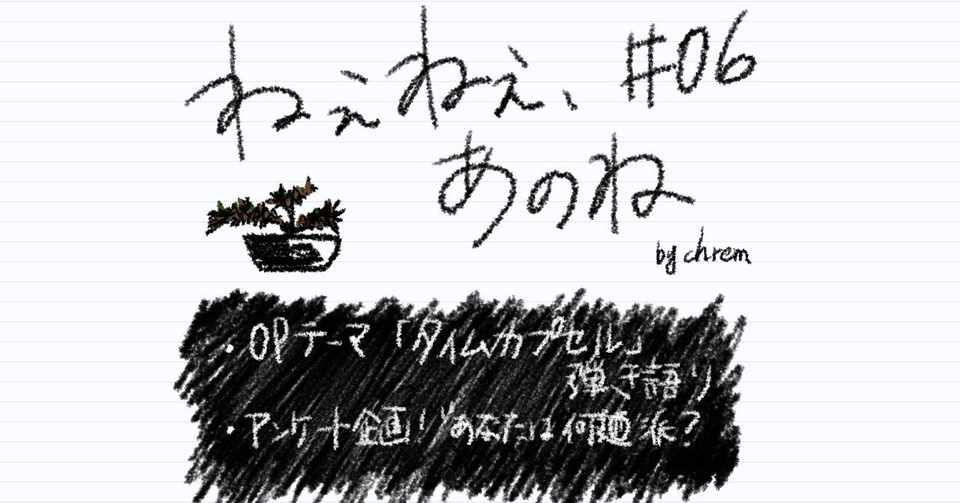 ねぇねぇ、#06
あのね
by chrem
・OPテーマ「タイムカプセル」
弾き語り
・アンケート企画!あなたは何麺派?